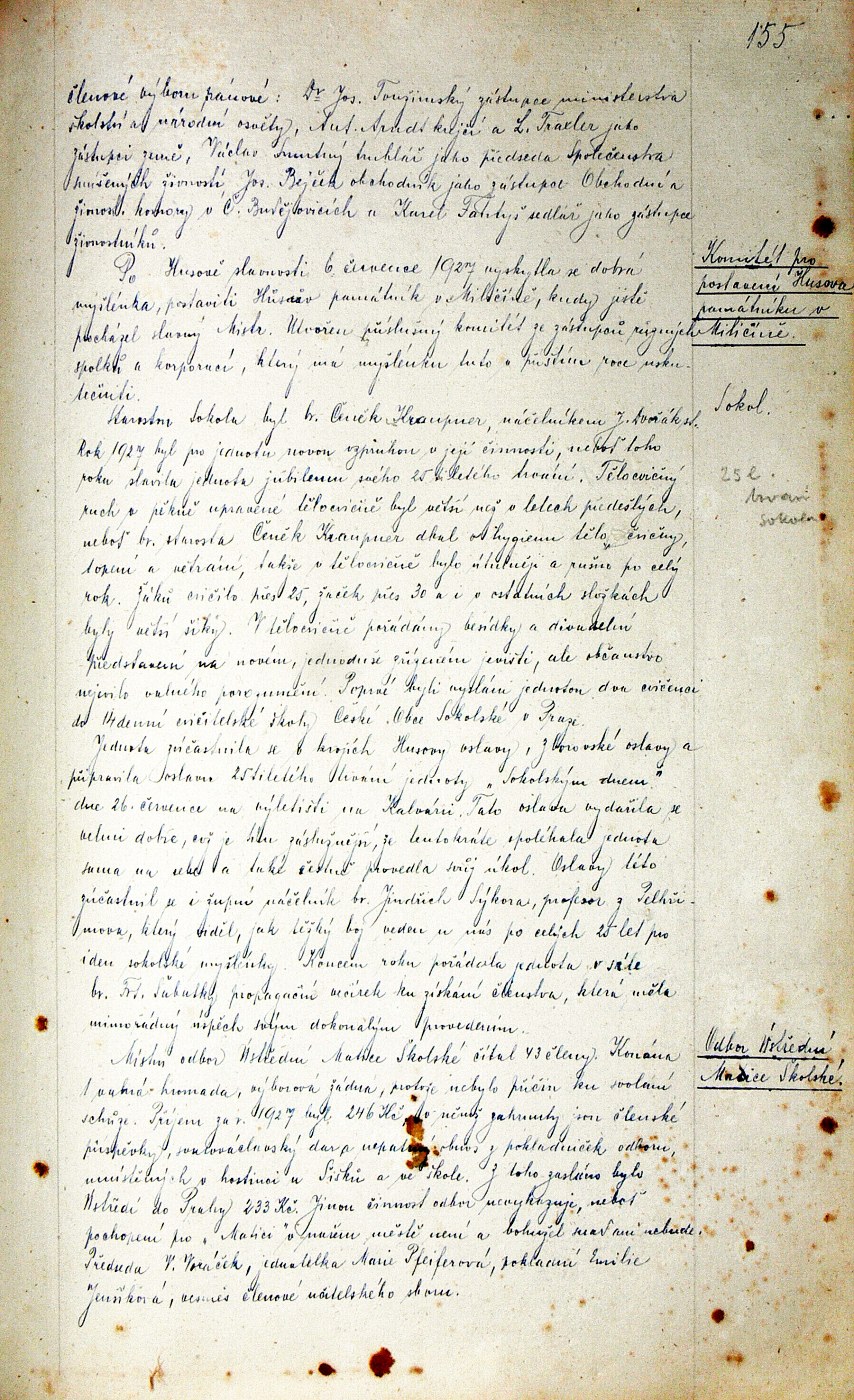 155
členové výboru pánové: Dr Jos. Toužimský zástupce ministerstva
školství a národní osvěty, Ant. Arndt krejčí a L. Traxler jako
zástupci země, Václav Smutný truhlář jako předseda Společenstva
smíšených živností, Jos. Bejček obchodník jako zástupce Obchodní a
živnost. komory v Č. Budějovicích a Karel sedlář jako zástupce
živnostníků.
Po Husově slavnosti 6 července 1927 vyskytla se dobrá
Komitét pro
myšlénka, postaviti Husův památník v Miličíně, kudy jistě
postavení Husova
pocházel slavný Mistr. Utvořen příslušný komitét ze zástupců různých
památníku v
Miličíně.
spolků a korporací, který má myšlénku tuto v příštím roce usku-
tečniti.
Starostou Sokola byl br. Čeněk Kraupner, náčelníkem J. Dvořák st.
Sokol.
Rok 1927 byl pro jednotu novou vzpruhou v její činnosti, neboť toho
roku slavila jednota jubileum svého 25tiletého trvání. Tělocvičný
25 l.
trvání
Sokola
ruch v pěkně upravené tělocvičně byl větší než v letech předešlých,
neboť br. starosta Čeněk Kraupner dbal o hygienu tělocvičny,
topení a větrání, takže v tělocvičně bylo útulněji a rušno po celý
rok. Žáků cvičilo přes 25, žaček přes 30 a i v ostatních složkách
byly větší šiky. V tělocvičně pořádány besídky a divadelní
představení na novém, jednoduše zřízeném jevišti, ale občanstvo
nejevilo valného porozumění. Poprvé byli vysláni jednotou dva cvičenci
do 14denní cvičitelské školy České Obce Sokolské v Praze.
Jednota zúčastnila se v krojích Husovy oslavy, Zborovské oslavy a
připravila oslavu 25tiletého trvání jednoty „Sokolským dnem“
dne 26. července na výletišti na Kalvárii. Tato oslava vydařila se
velmi dobře, což je tím záslužnější, že tentokráte spoléhala jednota
sama na sebe a také čestně provedla svůj úkol. Oslavy této
zúčastnil se i župní náčelník br. Jindřich Sýkora, profesor z Pelhři-
mova, který viděl, jak těžký boj veden u nás po celých 25 let pro
ideu sokolské myšlénky. Koncem roku pořádala jednota v sále
br. Frt. propagační večírek ku získání členstva, která měla
mimořádný úspěch svým dokonalým provedením.
Místní odbor Ústřední Matice Školské čítal 43 členy. Konána
Odbor Ústřední
Matice Školské.
1 valná hromada, výborová žádná, protože nebylo příčin ku svolání
schůze. Příjem za r. 1927 byl 246 Kč, v němž zahrnuty jsou členské
příspěvky, svatováclavský dar a nepatrný obnos z pokladniček odboru,
umístěných v hostinci u Šisků a ve škole. Z toho zasláno bylo
Ústředí do Prahy 233 Kč. Jinou činnost odbor nevykazuje, neboť
pochopení pro „Matici“ v našem městě není a bohužel snad ani nebude.
Předseda V. Voráček, jednatelka Marie Pfeiferová, pokladní Emilie
Jenšíková, vesměs členové učitelského sboru.